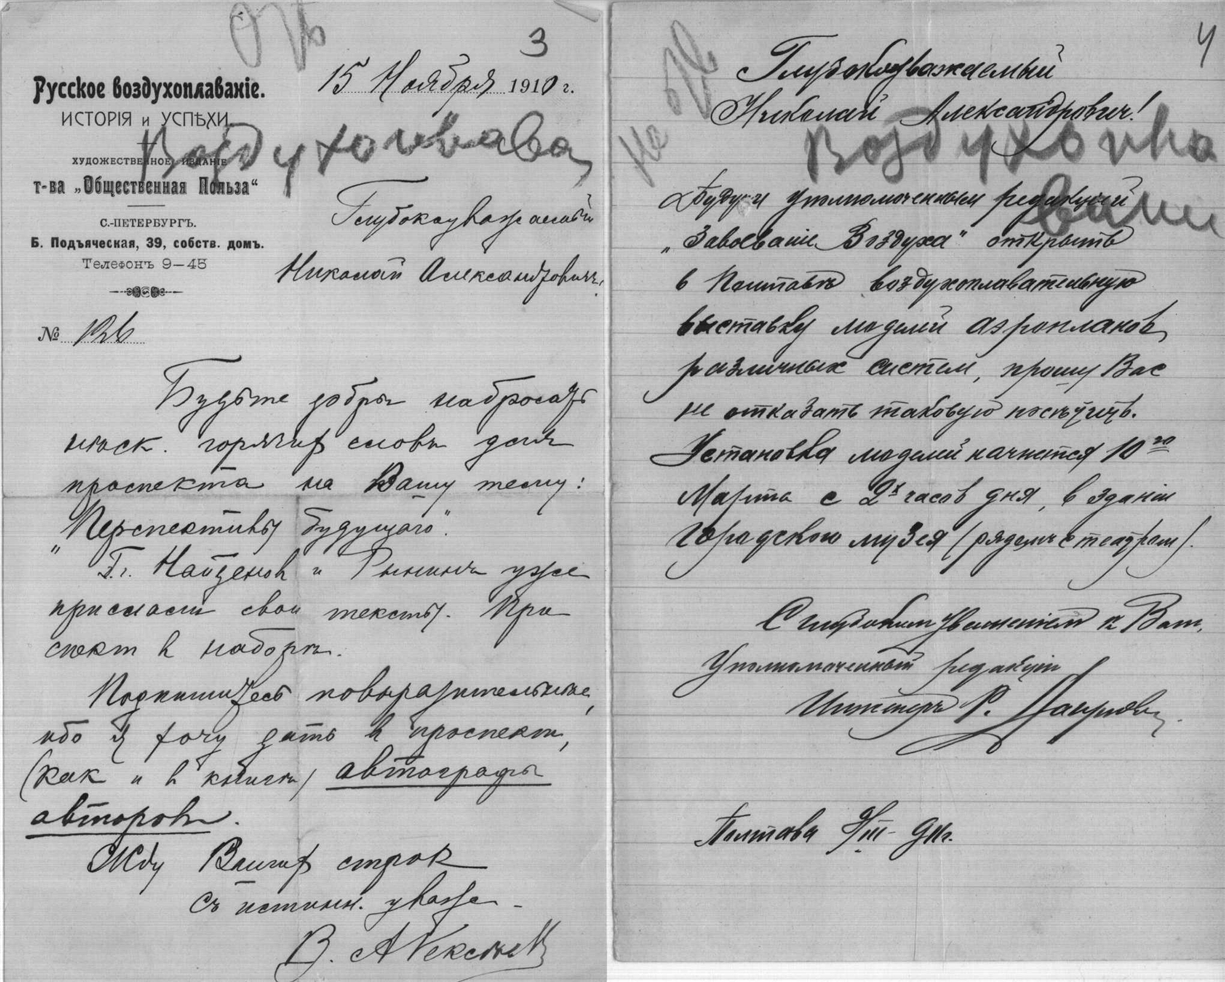 3
15 Ноября 1910 г.
Русское воздухоплаваніе.
ИСТОРІЯ и УСПѢХИ.
Воздухоплава
ХУДОЖЕСТВЕННОЕ ИЗДАНІЕ
т-ва „Общественная Польза“
С.-ПЕТЕРБУРГЪ.
Б. Подъяческая, 39, собств. домъ.
Телефонъ 9—45
№ 126
Глубокоуважаемый
Николай Александровичъ!
Будьте добры набросать
нѣск. горячихъ словъ для
проспекта на Вашу тему:
„Перспективы будущаго“.
Гг. Найденов и Рынинъ уже
прислали свои тексты. Про
спект в наборѣ.
Подпишитесь
ибо я хочу дать в проспект,
(как и в книги) автографы
авторовъ.
Жду Ваших строк
Съ истинн. уваж
В.
4
Глубокоуважаемый
Николай Александрович!
Воздухопла
вание
Будучи уполномоченным редакціи
„Завоеваніе Воздуха“ открыть
в Полтавѣ воздухоплавательную
выставку моделей аэропланов
различных систем, прошу Вас
не отказать таковую посѣтить.
Установка моделей начнется 10го
Марта с 2х часов дня, в зданіи
городского музея (рядом с театром).
С глубоким уваженіем к Вам,
Уполномоченный редакціи
Инженеръ Р.
Полтава 9/III